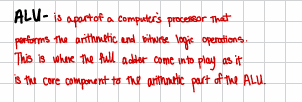 ALU - is a part of a computer's processor that
performs the arithmetic and bitwise logic operations.
This is where the full adder come into play as it
is the core component to the arithmetic part of the ALU.